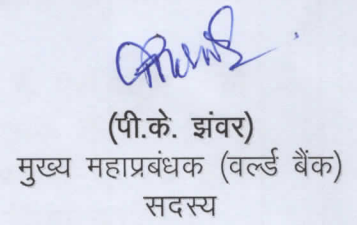 (पी.के. झंवर)
मुख्य महाप्रबंधक (वर्ल्ड बैंक)
सदस्य